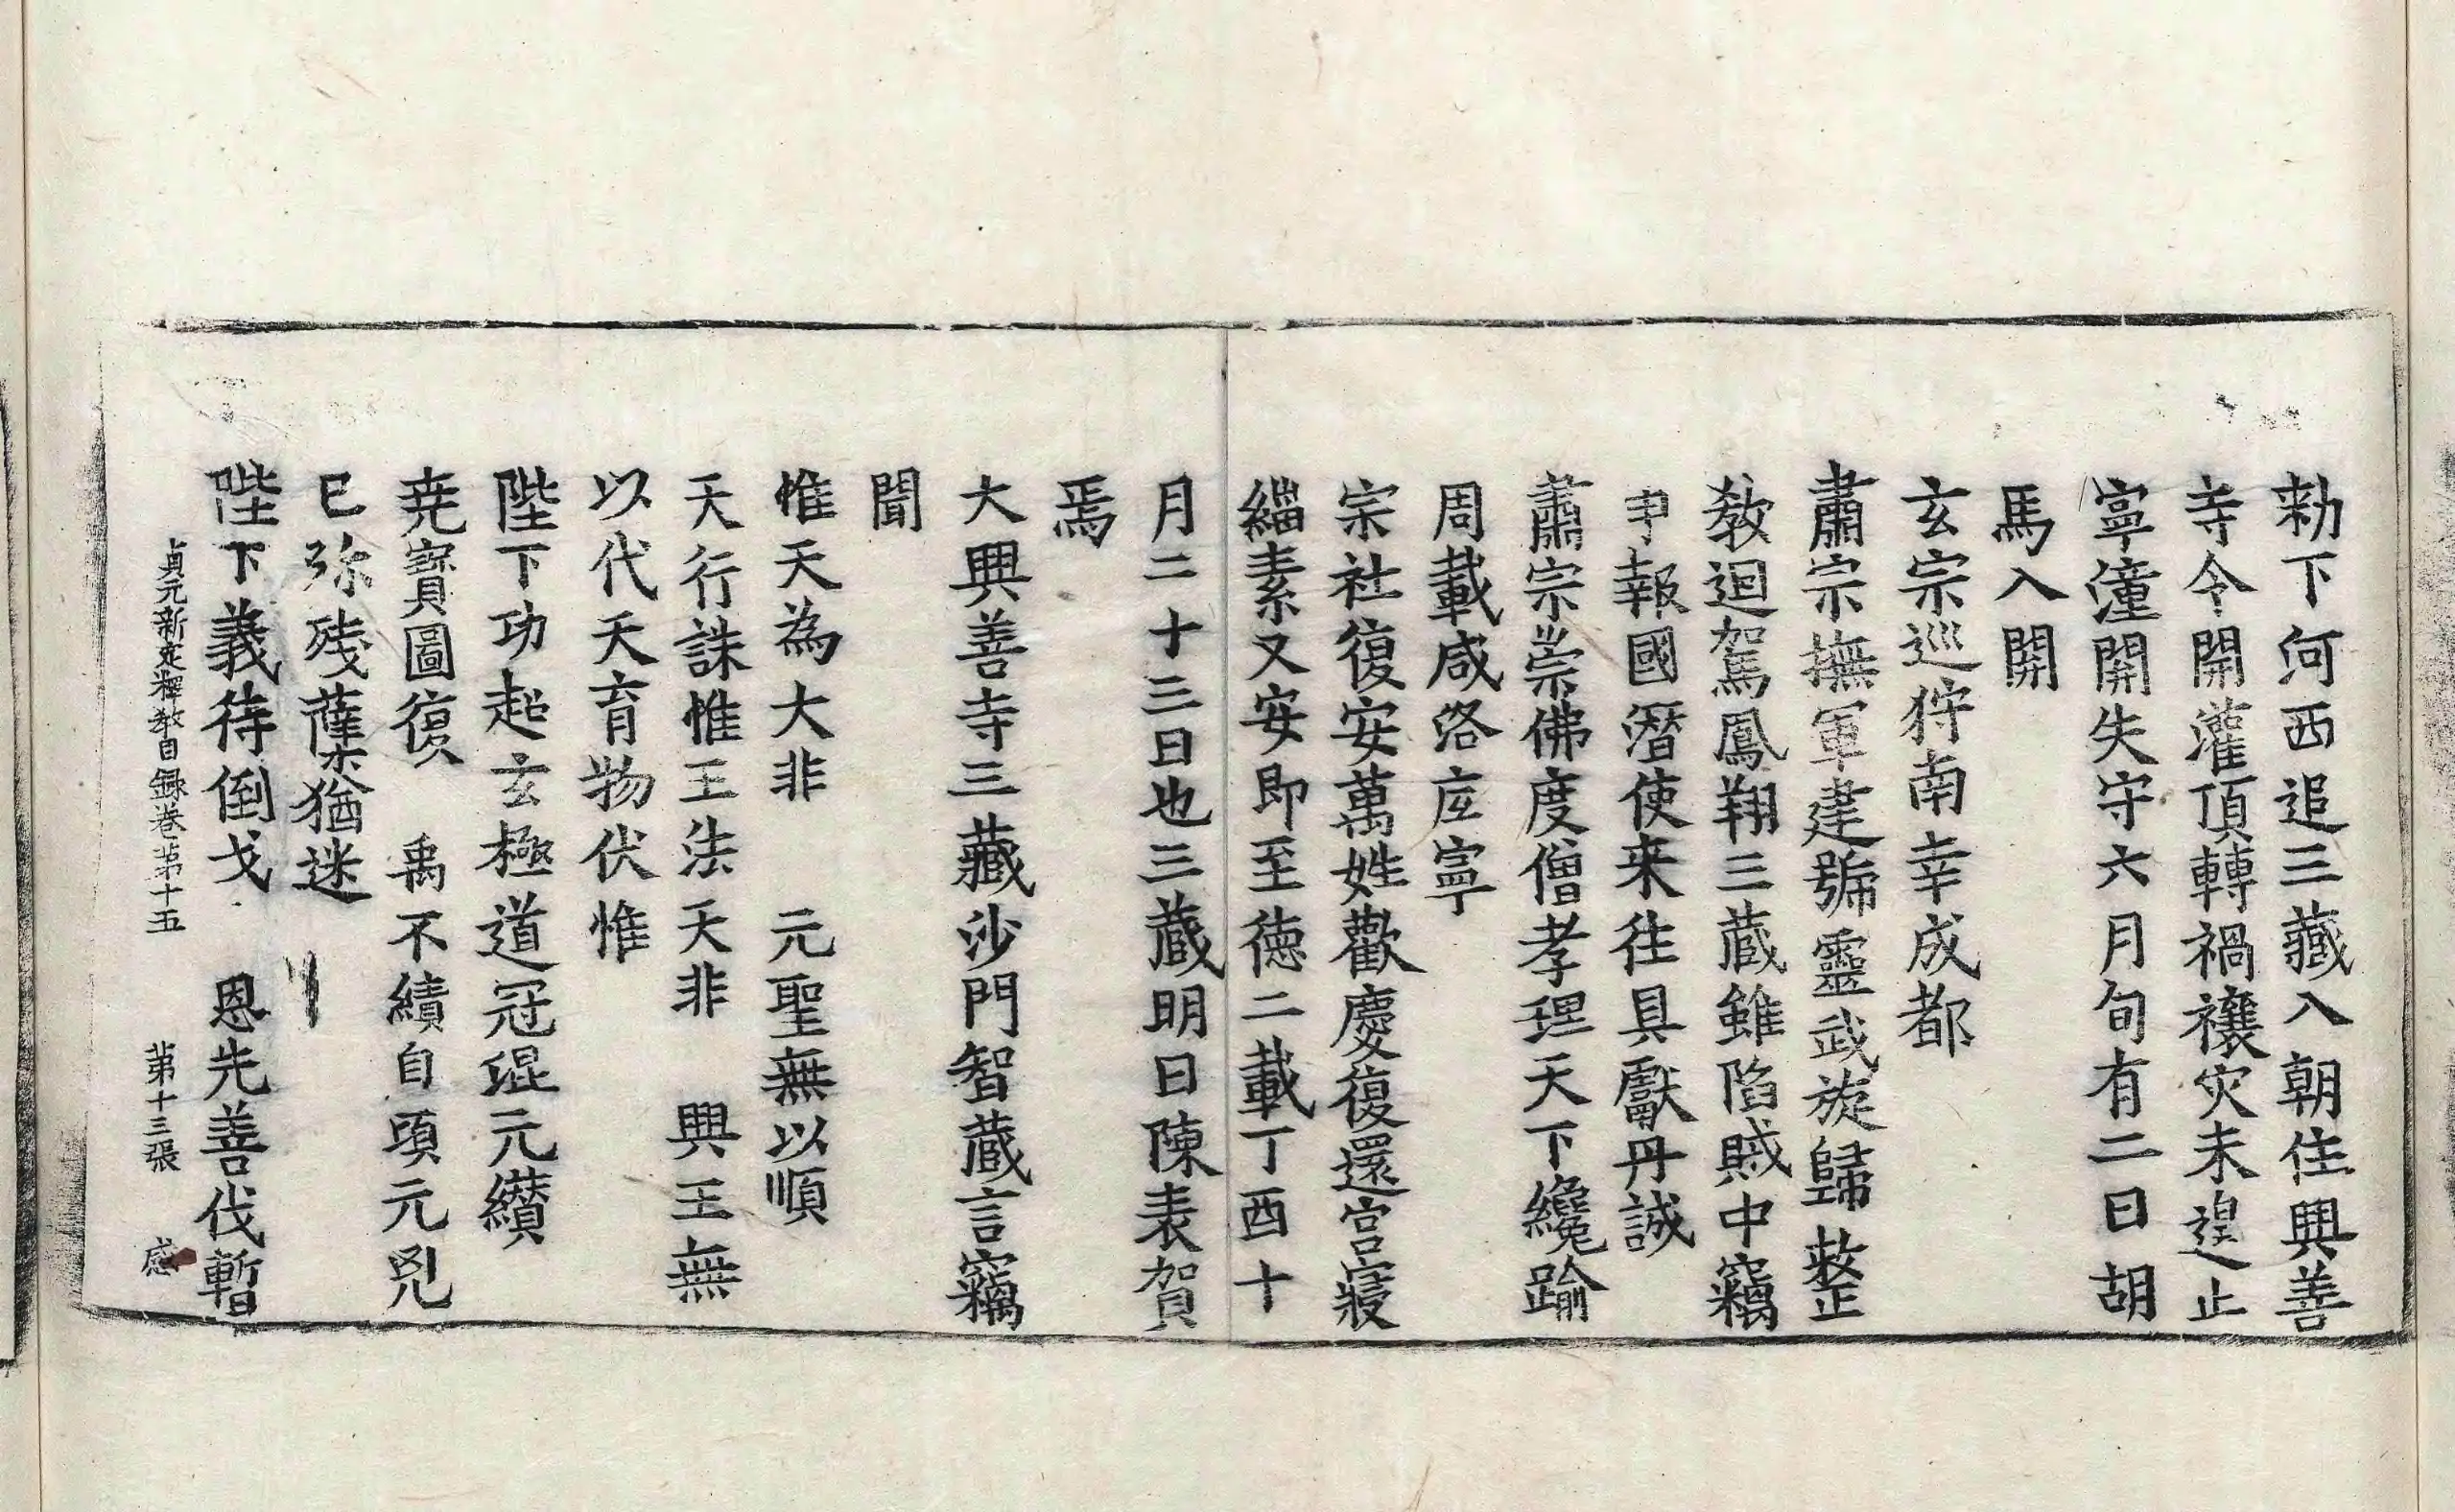 勑下何西追三藏入朝住興善
寺令開灌頂轉禍禳灾未遑止
寧潼開失守六月旬有二日胡
馬入開
玄宗巡狩南幸成都
肅宗撫軍建號靈武旋歸整
敎迴駕鳳翔三蔵雖陷賊中竊
申報國潛使来往具獻丹誠
肅宗崇佛度僧孝理天下纔踰
周載咸洛㡯寧
宗社復安萬姓歡慶復還宫寢
緇素又安即至徳二載丁酉十
月二十三日也三蔵明日陳表賀
焉
大興善寺三藏沙門智蔵言竊
聞
惟天為大非 元聖無以順
天行誅惟王法天非 興王無
以代天育物伏惟
陛下功超玄極道冠混元纘
尭寳圖復 禹不績自頃元兇
已弥残蘖猶迷
陛下義待倒戈 恩先善伐暫
貞元新定釋教目録卷第十五 第十三張 感